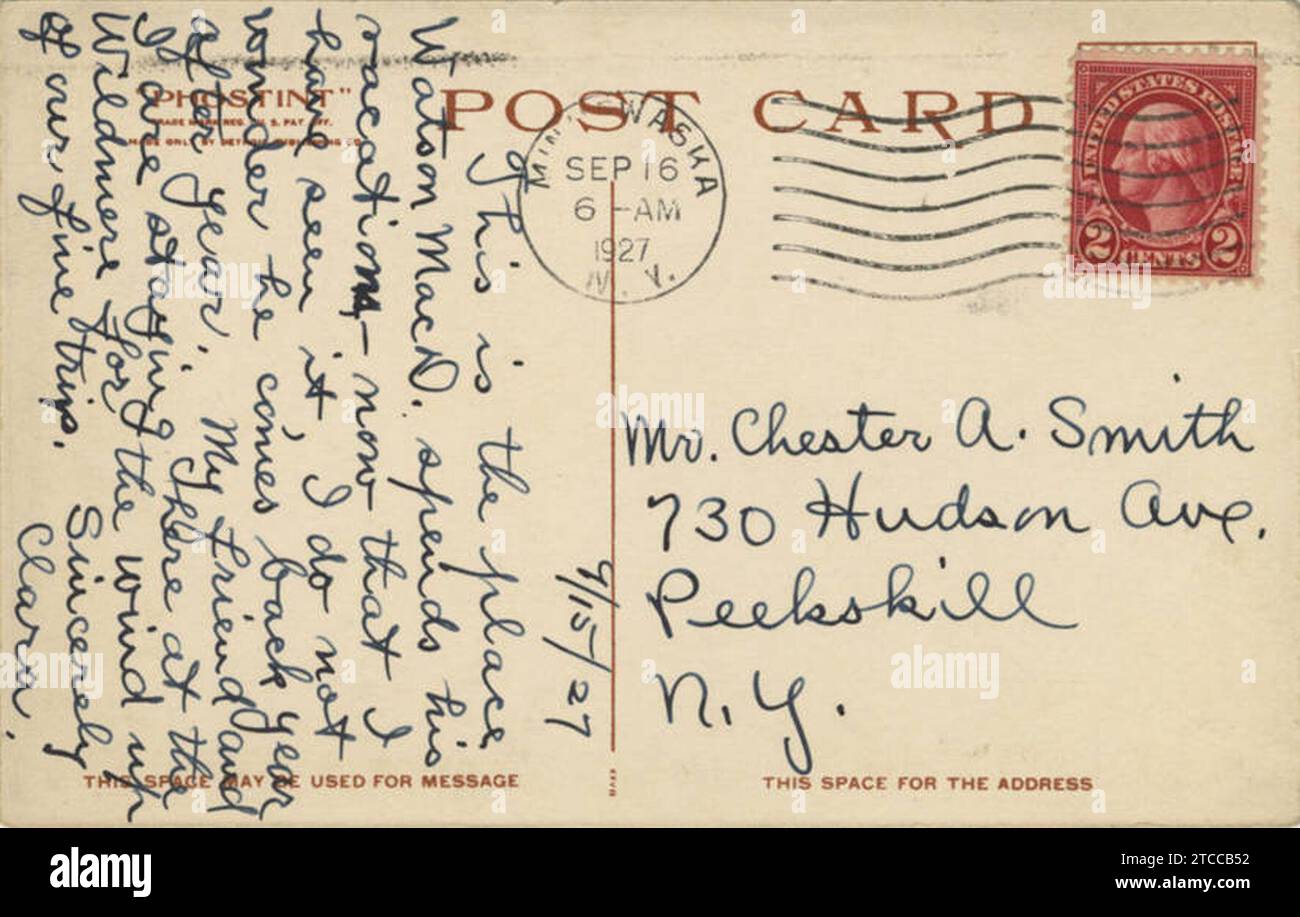 "PHOSTINT"
POST CARD
TRADE MARK REG. U. S. PAT. OFF.
MADE ONLY BY DETROIT PUBLISHING CO.
MINNEWASKA
SEP 16
6 -AM
1927
N. Y.
UNITED STATES POSTAGE
2 CENTS 2
9/15/27
This is the place
Watson MacD. spends his
vacations, - now that I
have seen it, I do not
wonder he comes back year
after year. My friend and
I are staying there at the
Wildmere for the wind up
of our fine trip.
Sincerely
Clara.
Mr. Chester A. Smith
730 Hudson Ave.
Peekskill
N. Y.
THIS SPACE MAY BE USED FOR MESSAGE
THIS SPACE FOR THE ADDRESS
alamy
Image ID: 2TCCB52
www.alamy.com